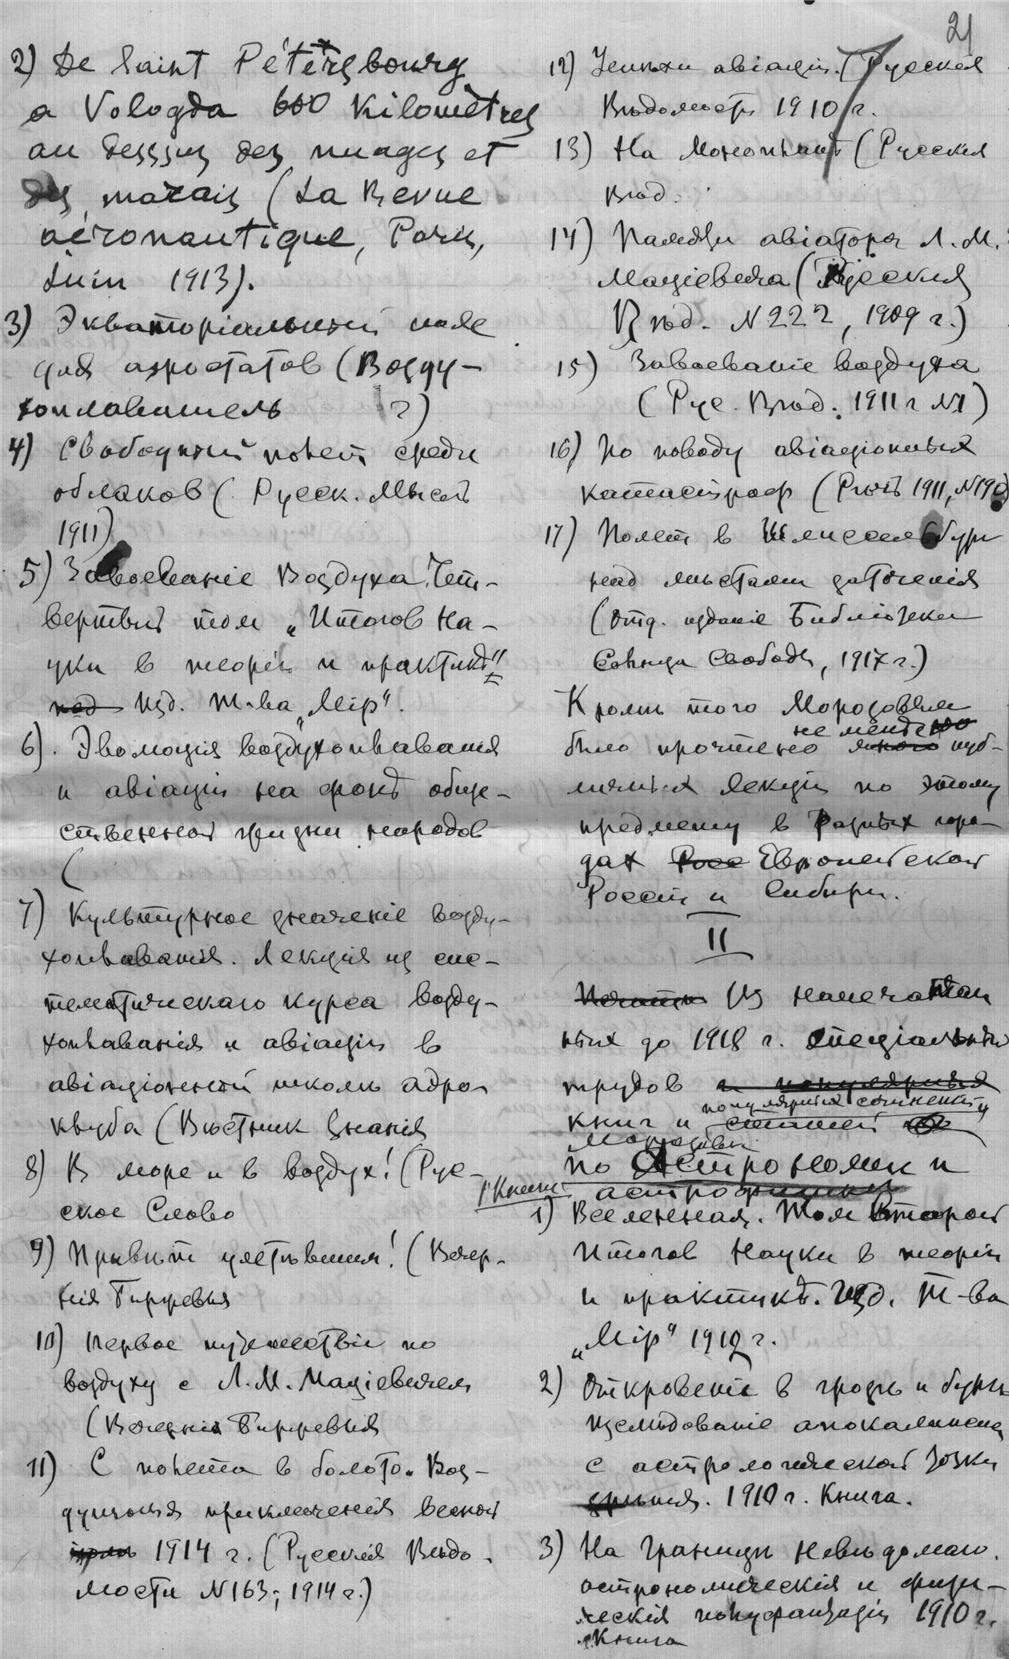 21
2) De Saint Pétersbourg
a Vologda 600 Kilomètres
au dessus des nuages et
des marais (La Revue
aéronautique, Paris,
Juin 1913).
3) Экваторіальный пояс
для аэростатов (Возду-
хоплаватель ?)
4) Свободный полет среди
облаков (Русск. Мысль
1911)
5) Завоеваніе Воздуха. Чет-
вертый том „Итогов На-
уки в теоріи и практикѣ"
изд. Т-ва „Мір".
6). Эволюція воздухоплаванія
и авіаціи на фонѣ обще-
ственной жизни народов
(
7) Культурное значеніе возду-
хоплаванія. Лекція из сис-
тематическаго курса возду-
хоплаванія и авіаціи в
авіаціонной школѣ аэро-
клуба (Вѣстник Знанія
8) В море и в воздух! (Рус-
ское Слово
9) Привѣт улетѣвшим! (Вечер-
нія Биржевыя
10) Первое путешествіе по
воздуху с Л. М. Мацієвичем
(Вечернія Биржевыя
11) С полета в болото. Воз-
душныя приключенія весной
1914 г. (Русскія Вѣдо-
мости N163, 1914 г.)
12) Успѣхи авіаціи. (Русскія
Вѣдомости 1910 г.
13) На Монопланѣ (Русскія
Вѣд.
14) Памяти авіатора Л. М.
Мацієвича (Русскія
Вѣд. N 222, 1909 г.)
15) Завоеваніе воздуха
(Рус. Вѣд. 1911 г N1)
16) По поводу авіаціонных
катастроф (Рѣчь 1911, N190)
17) Полет в Шлиссельбург
над мѣстами заточенія
(Отд. изданіе Библіотеки
Солнца Свободы, 1917 г.)
Кромѣ того Морозовым
было прочтено не мало пуб-
личных лекцій по этому
предмету в разных горо-
дах Европейской
Россіи и Сибири.
II
Из напечатан
ных до 1918 г. спеціальных
трудов
книг и популярных сочиненій
Морозовым
по Астрономіи и
астрофизикѣ
I Книги
1) Вселенная. Том Второй
Итогов Науки в теоріи
и практикѣ. Изд. Т-ва
„Мір" 1912 г.
2) Откровеніе в грозѣ и бурѣ
Изслѣдованіе апокалипсиса
с астрологической точки
зрѣнія. 1910 г. Книга.
3) На границѣ невѣдомаго.
астрономическія и физи-
ческія полуфантазіи 1910 г.
Книга